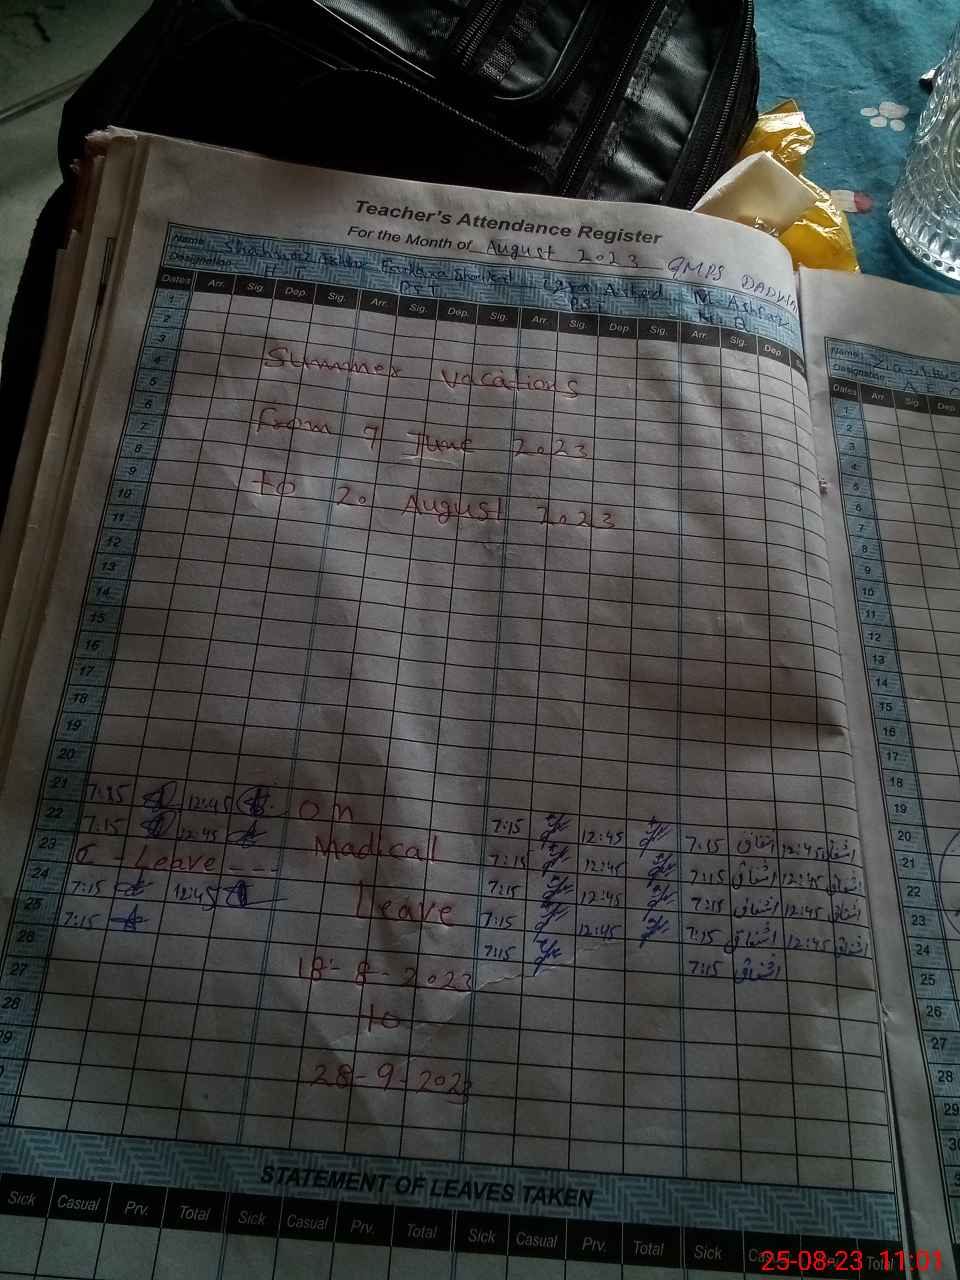 Teacher's Attendance Register
For the Month of August 2023 GMPS DADWA
Name Farhana Shoukat Arshad M. Ashfaq
Designation H T PST PST
Dates Arr. Sig. Dep. Sig. Arr. Sig. Dep. Arr. Sig. Dep. Sig. Arr. Sig. Dep.
1
2
3
4
5
6
7
8
9
10
11
12
13
14
15
16
17
18
19
20
21
22
23
24
25
26
27
28
29
Summer vacations
from 7 June 2023
to 20 August 2023
7:15 12:45 7:15 12:45 7:15 اشفاق 12:45 اشفاق
7:15 12:45 7:15 12:45 7:15 اشفاق 12:45 اشفاق
C - Leave --- 7:15 12:45 7:15 اشفاق 12:45 اشفاق
7:15 12:45 7:15 12:45 7:15 اشفاق 12:45 اشفاق
7:15 7:15 7:15 اشفاق
on
Madical
Leave
18-8-2023
to
28-9-2023
STATEMENT OF LEAVES TAKEN
Sick Casual Prv. Total Sick Casual Prv. Total Sick Casual Prv. Total Sick Total
Name:
Designation
Dates Arr. Sig. Dep
1
2
3
4
5
6
7
8
9
10
11
12
13
14
15
16
17
18
19
20
21
22
23
24
25
26
27
28
29
25-08-23 11:01